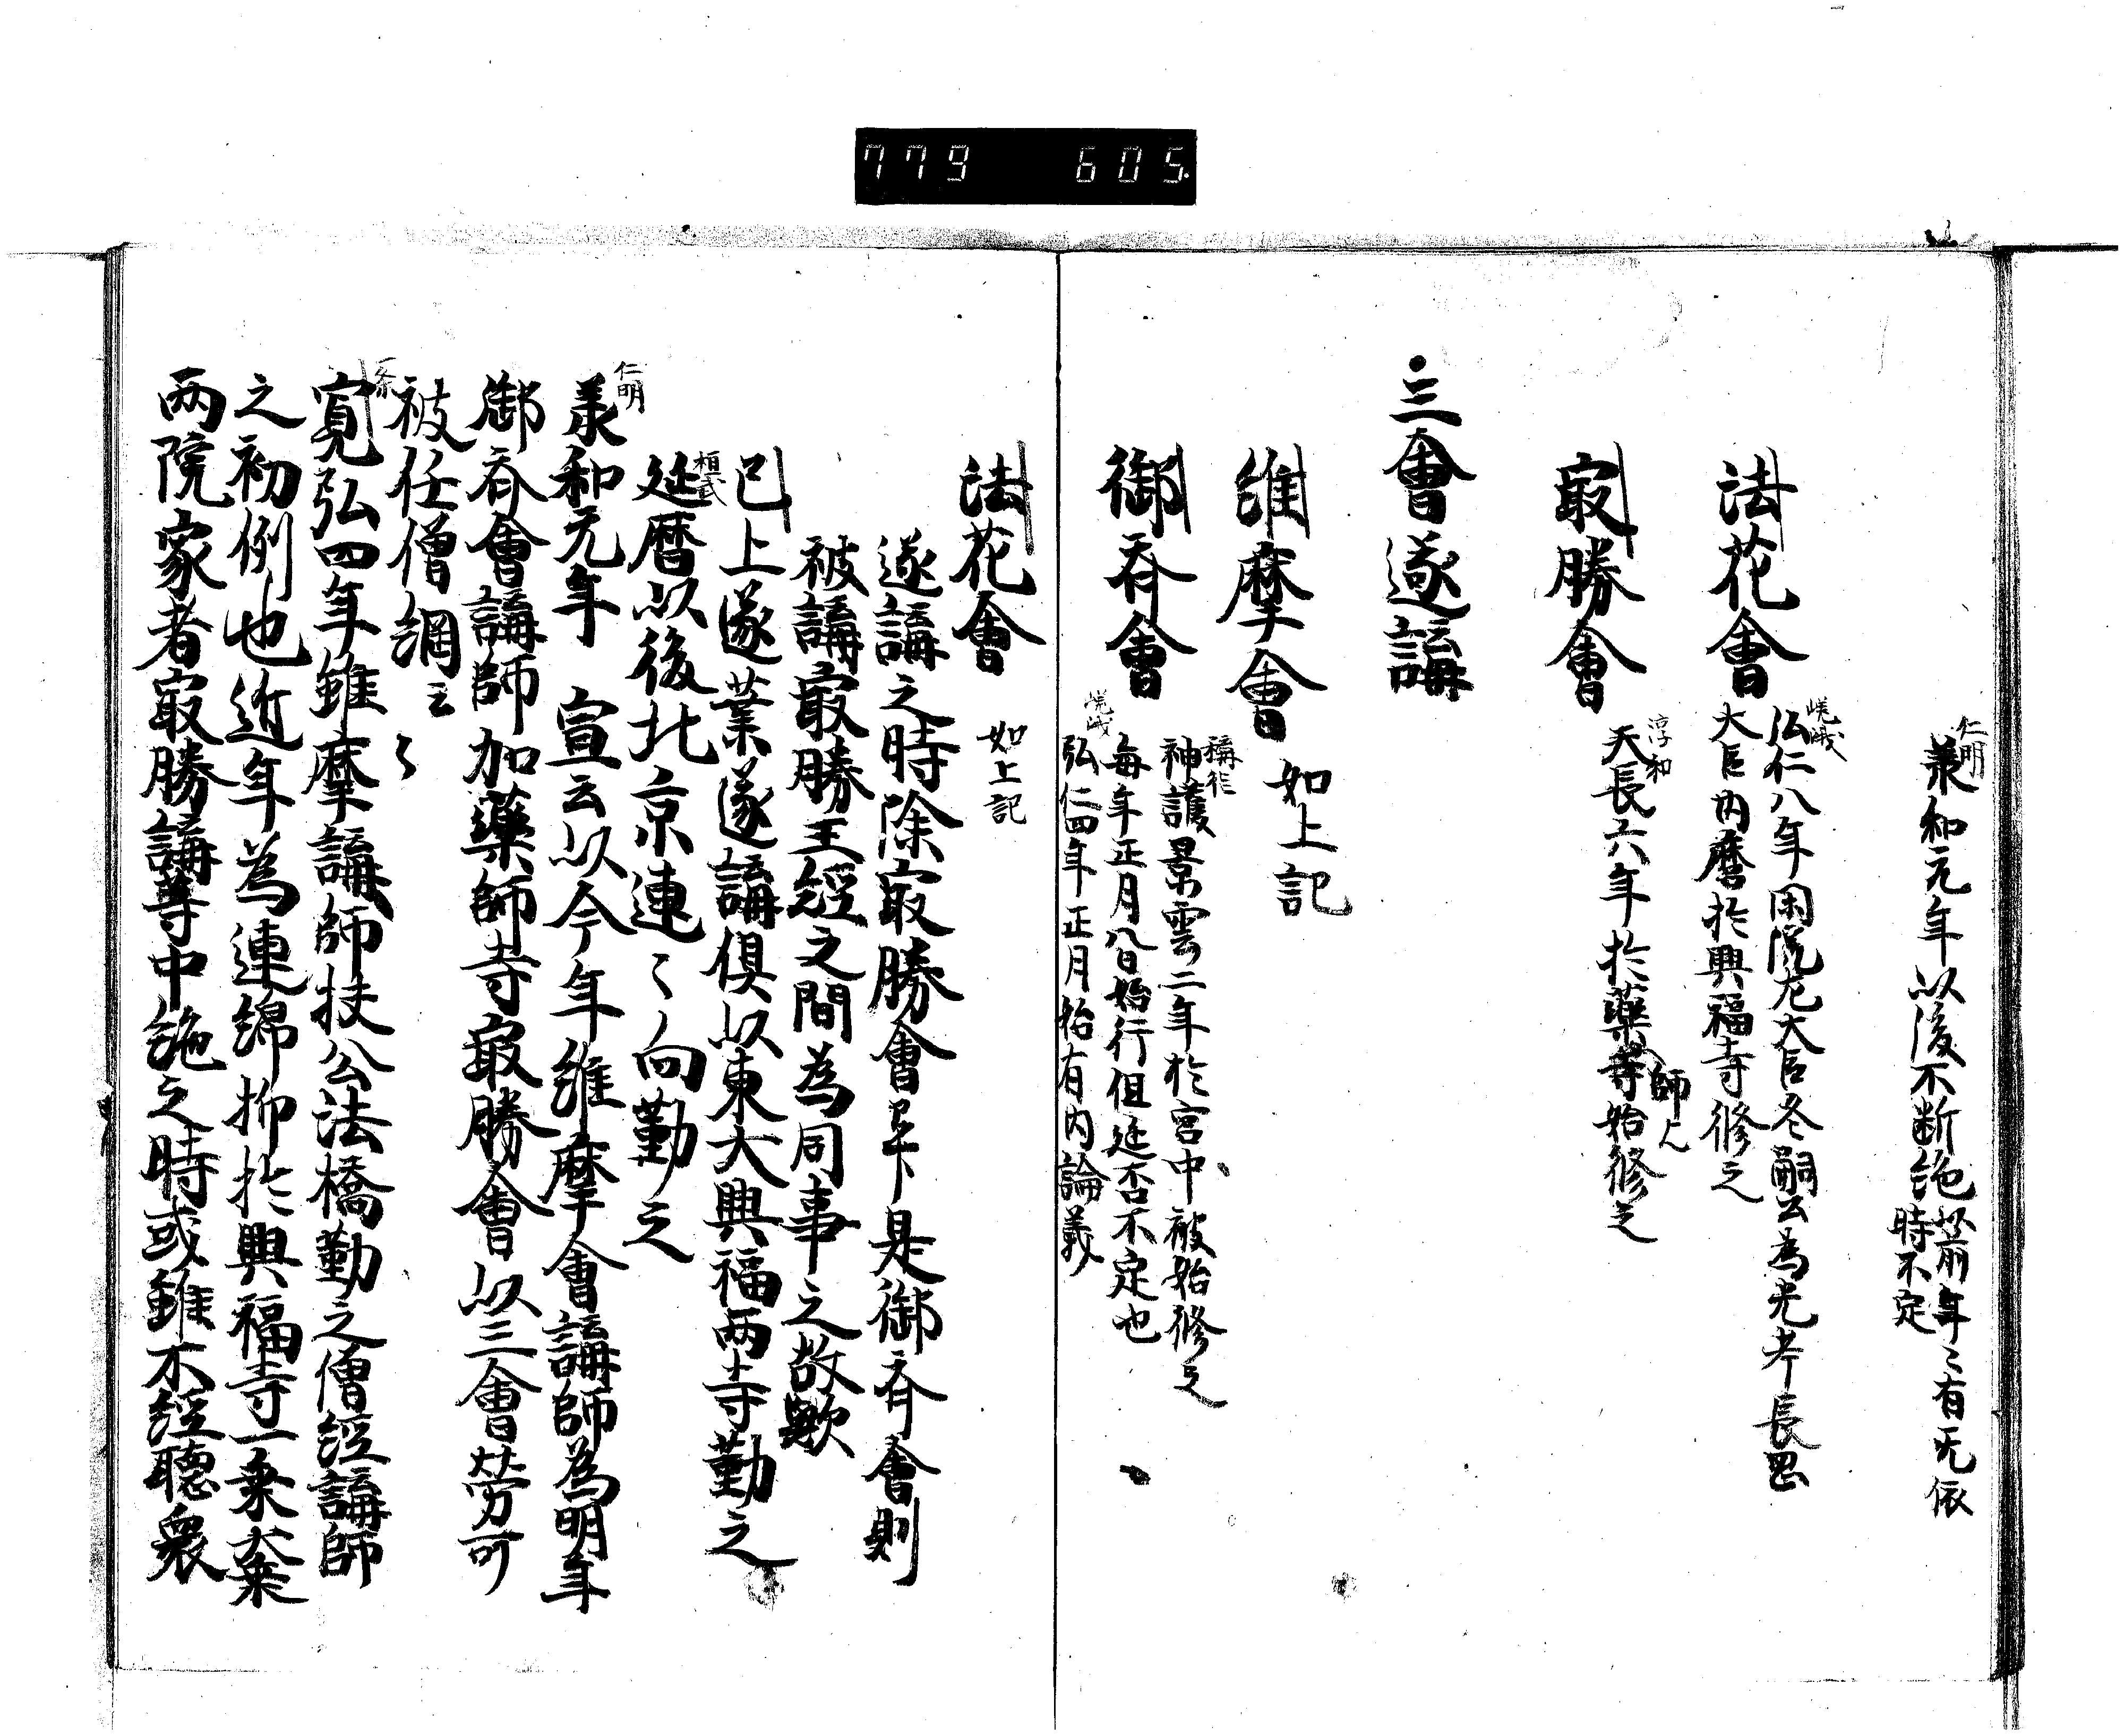 779 605
仁明
承和元年以後不断絶
以前年〻有无依
時不定
法花會
嵯峨
弘仁八年閑院左大臣冬嗣公為先考長岡
大臣内麿於興福寺修之
㝡勝會
淳和
天長六年於藥師寺始修之
三會遂講
維摩會 如上記
御斎會
稱徳
神護景雲二年於宮中被始修之
毎年正月八日始行但延否不定也
嵯峨
弘仁四年正月始有内論義
法花會 如上記
遂講之時除㝡勝會畢是御斎會則
被講㝡勝王経之間為同事之故歟
已上遂業遂講倶以東大興福兩寺勤之
桓武
延暦以後北京連〻向勤之
仁明
承和元年 宣云以今年維摩會講師為明年
御斎會講師加藥師寺㝡勝會以三會勞可
被任僧綱云〻
一条
寛弘四年維摩講師扶公法橋勤之僧経講師
之初例也近年為連綿抑於興福寺一乗大乗
兩院家者㝡勝講等中絶之時或雖不経聴衆